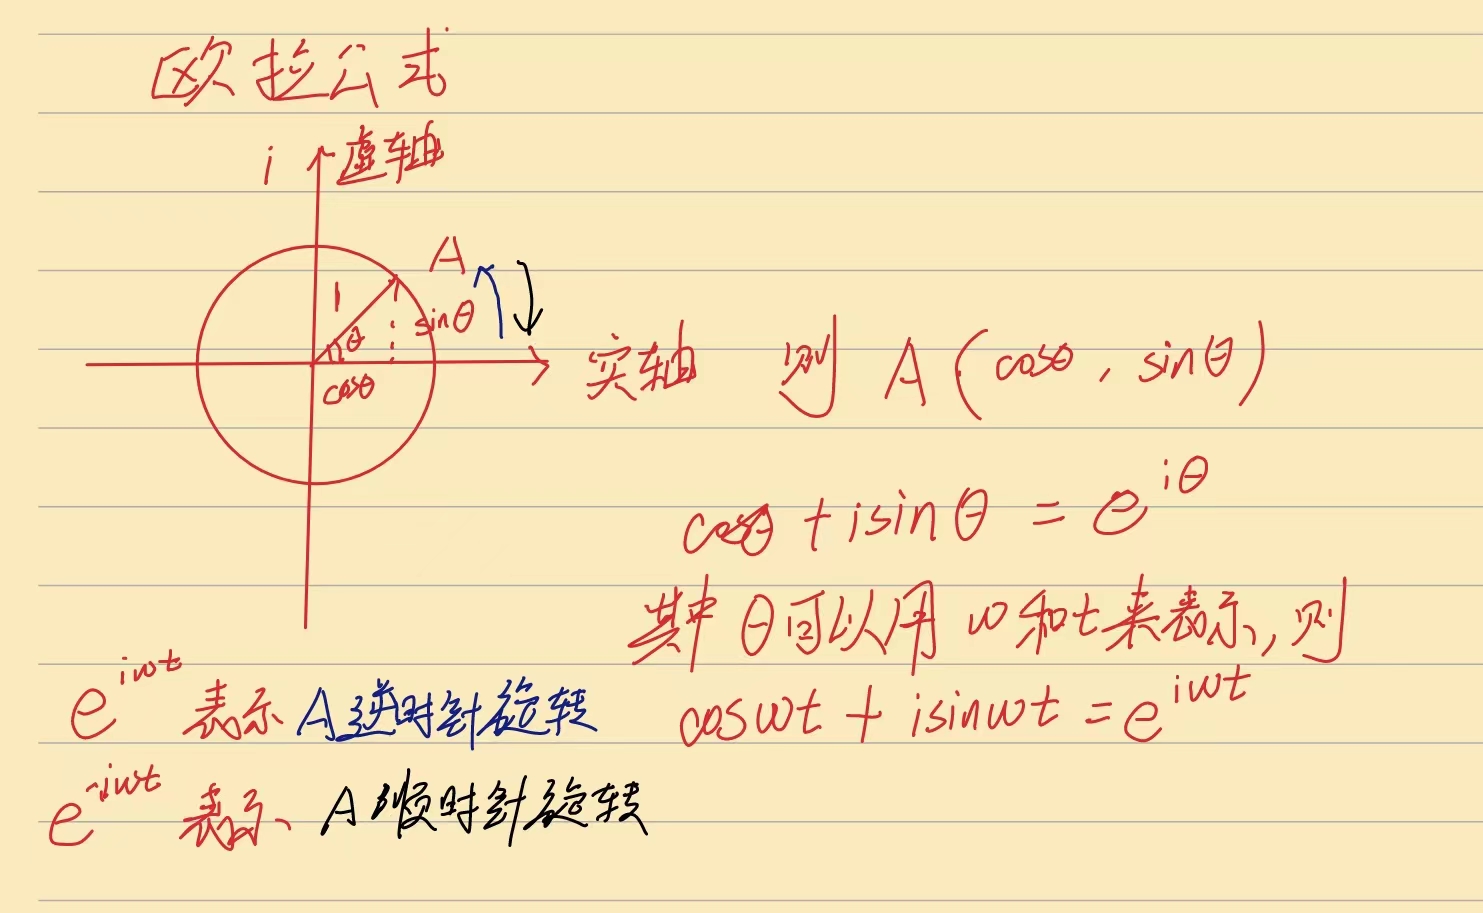 欧拉公式
i 虚轴
A
1
sinθ
θ
cosθ
实轴 则 A(cosθ, sinθ)
cosθ + isinθ = e^{iθ}
其中 θ可以用 w和t来表示, 则
coswt + isinwt = e^{iwt}
e^{iwt} 表示 A逆时针旋转
e^{-iwt} 表示 A顺时针旋转